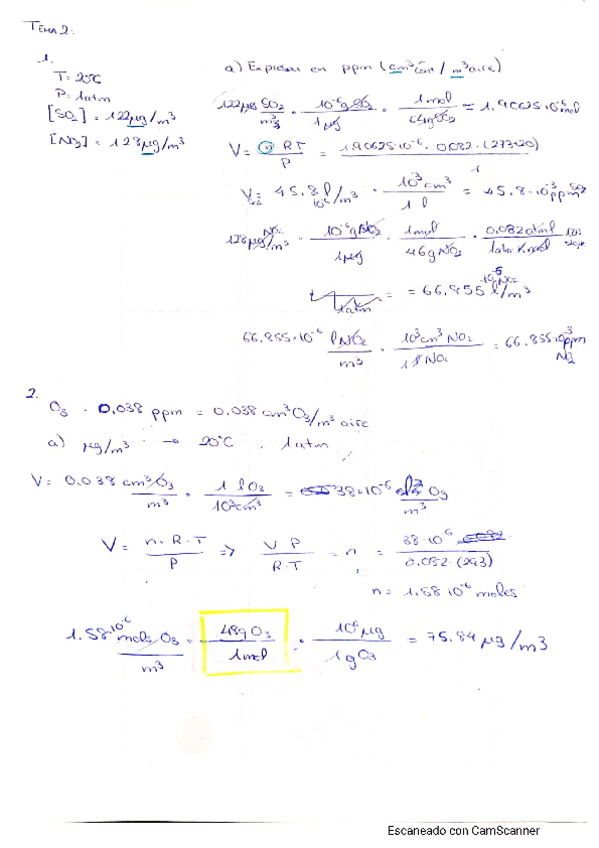 TEMA 2:
1.
T = 20°C
P = 1 atm
[SO2] = 122 µg/m³
[NO2] = 128 µg/m³
a) Expresar en ppm (cm³cont / m³aire)
122µg SO2/m³ · 10^-6 g SO2/1µg · 1mol/64g SO2 = 1.90625·10^-6 mol
V = n·R·T/P = 1.90625·10^-6 · 0.082 · (273+20)/1
V = 45.8 · 10^-6 l/m³ · 10³ cm³/1 l = 45.8·10^-3 ppm SO2
128µg NO2/m³ · 10^-6 g NO2/1µg · 1mol/46g NO2 · 0.082 atm l/1 atm K mol
1 atm = 66.855 · 10^-6 l/m³
66.855·10^-6 l NO2/m³ · 10³ cm³ NO2/1 l NO2 = 66.855·10^-3 ppm
2.
O3 - 0.038 ppm = 0.038 cm³O3/m³ aire
a) µg/m³ → 20°C . 1 atm
V = 0.038 cm³ O3/m³ · 1 l O3/10³ cm³ = 38·10^-6 l O3/m³
V = n·R·T/P => V P/R·T = n = 38·10^-6/0.082·(293)
n = 1.58 10^-6 moles
1.58·10^-6 mols O3/m³ · 48g O3/1 mol · 10^6 µg/1 g O3 = 75.84 µg/m3
Escaneado con CamScanner